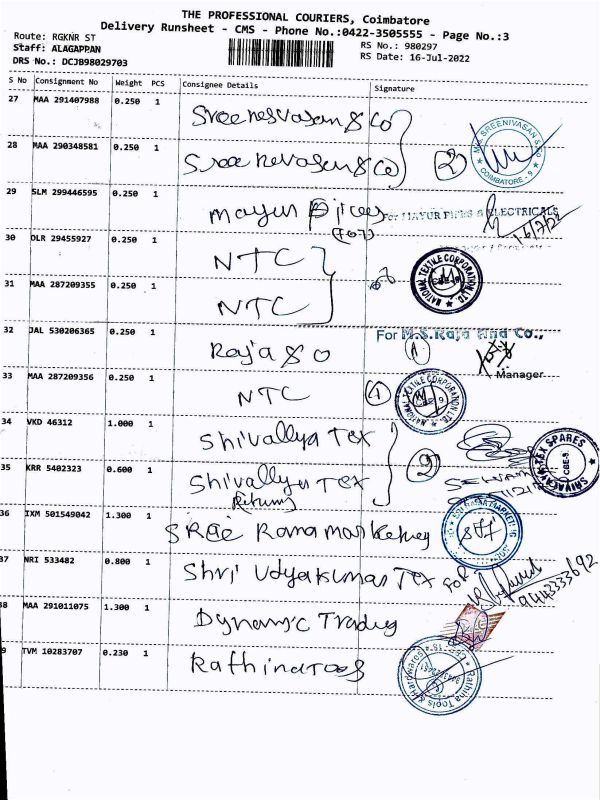 THE PROFESSIONAL COURIERS, Coimbatore
Delivery Runsheet - CMS - Phone No.:0422-3505555 - Page No.:3
Route: RGKNR ST
Staff: ALAGAPPAN
RS No.: 980297
DRS No.: DCJB98029703
RS Date: 16-Jul-2022
S No Consignment No Weight PCS Consignee Details Signature
27 MAA 291407988 0.250 1 Sreenesvasan & Co
28 MAA 290348581 0.250 1 Sreenevasan & Co 2
M/s. SREENIVASAN & CO
★ COIMBATORE - 9 ★
29 SLM 299446595 0.250 1 Mayur Pipes
For MAYUR PIPES & ELECTRICALS
16/7/22
30 DLR 29455927 0.250 1 NTC
31 MAA 287209355 0.250 1 NTC
NATIONAL TEXTILE CORPORATION LTD.
CBE-9
32 JAL 530206365 0.250 1 Raja & Co 1
For M.S.Raja And Co.,
Manager
33 MAA 287209356 0.250 1 NTC 1
NATIONAL TEXTILE CORPORATION LTD.
CBE-9
34 VKD 46312 1.000 1 Shivallya Tex
35 KRR 5402323 0.600 1 Shivallya Tex 2
Return
SHIVALAYA TEX SPARES
CBE-9.
36 IXM 501549042 1.300 1 Sree Rama Marketing
37 NRI 533482 0.800 1 Shri Udyakumar Tex
FOR
9443333692
38 MAA 291011075 1.300 1 Dynamic Trading
39 TVM 10283707 0.230 1 Rathinatools
Rathina Tools & Hardwares